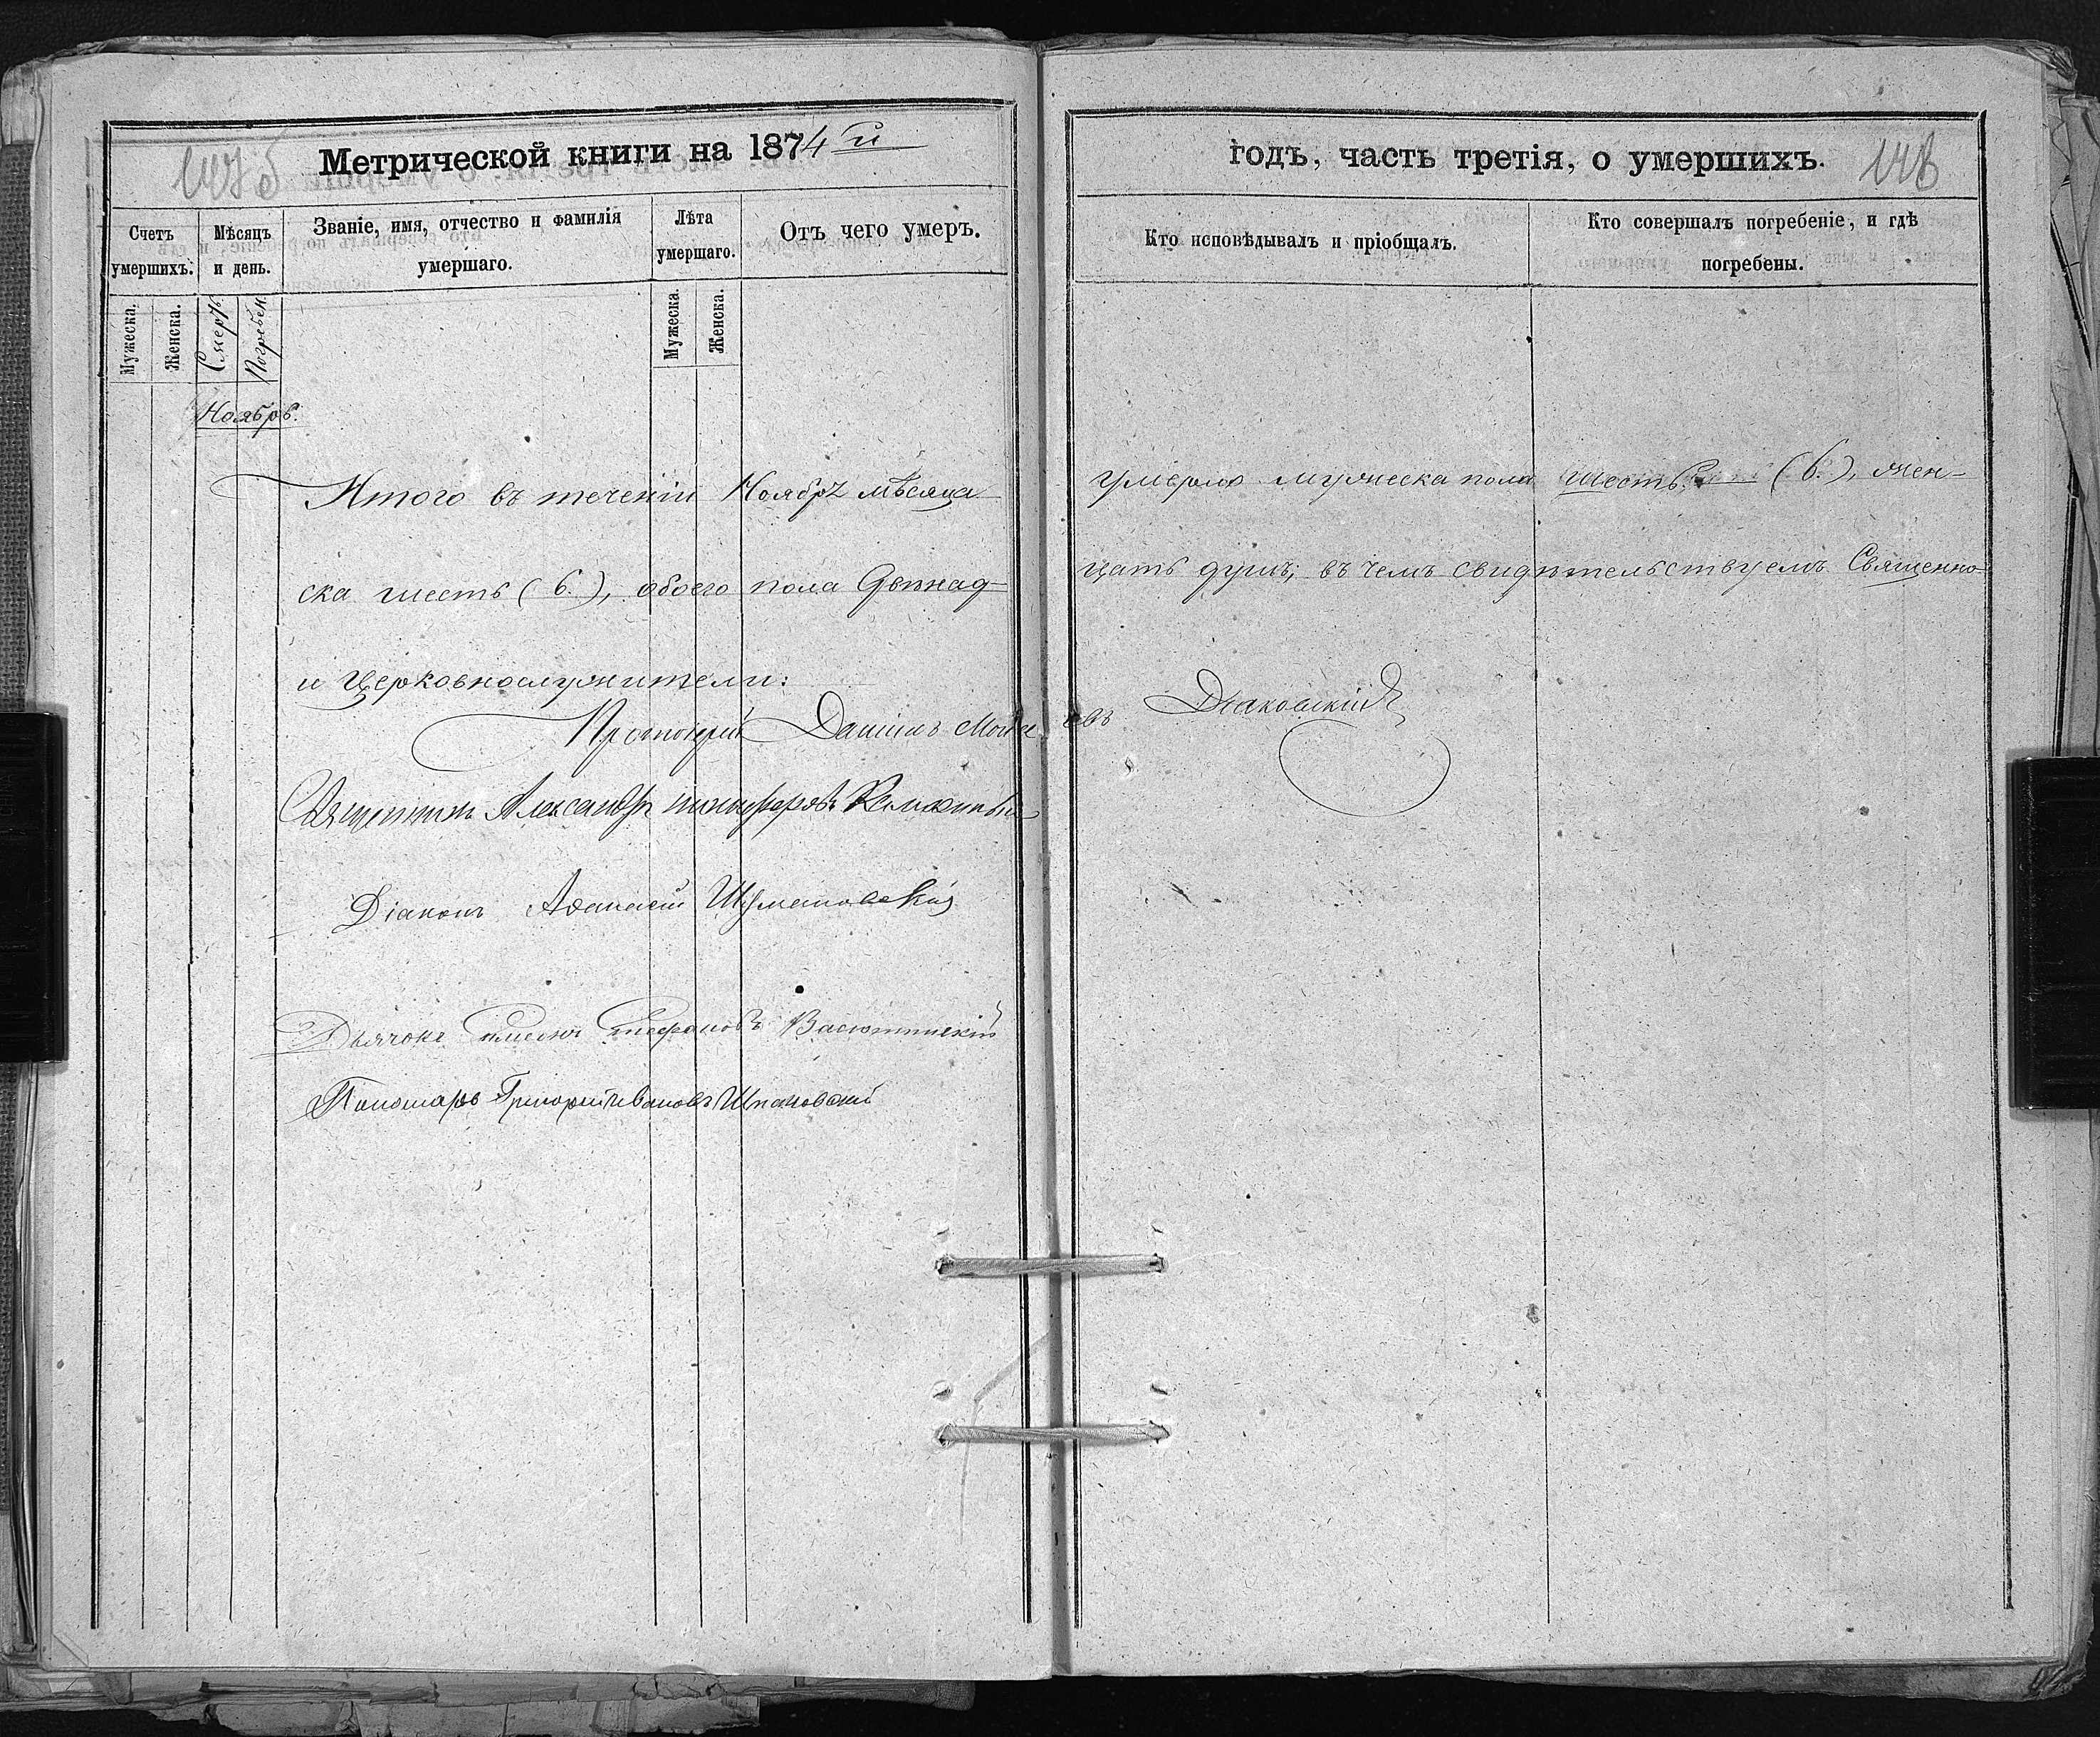 147б
Метрической книги на 1874й
годъ, часть третія, о умершихъ.
148
Счетъ умершихъ.
Мѣсяцъ и день.
Званіе, имя, отчество и фамилія умершаго.
Лѣта умершаго.
Отъ чего умеръ.
Кто исповѣдывалъ и пріобщалъ.
Кто совершалъ погребеніе, и гдѣ погребены.
Мужеска.
Женска.
Смерть
Погребен
Мужеска.
Женска.
Ноябрь.
Итого въ теченіи Ноября мѣсяца умерло мужеска пола шесть (6.), жен-
ска шесть (6.), обоего пола Двѣнад-
цать душъ; въ чемъ свидѣтельствуемъ Священно
и Церковнослужители:
Протоіерей Даніилъ Діаковскій
Священникъ Александръ
Діаконъ Аѳанасій Шумановскій
Дьячокъ Стефановъ Васютинскій
Пономарь Григорій Ивановъ Шпаковскій